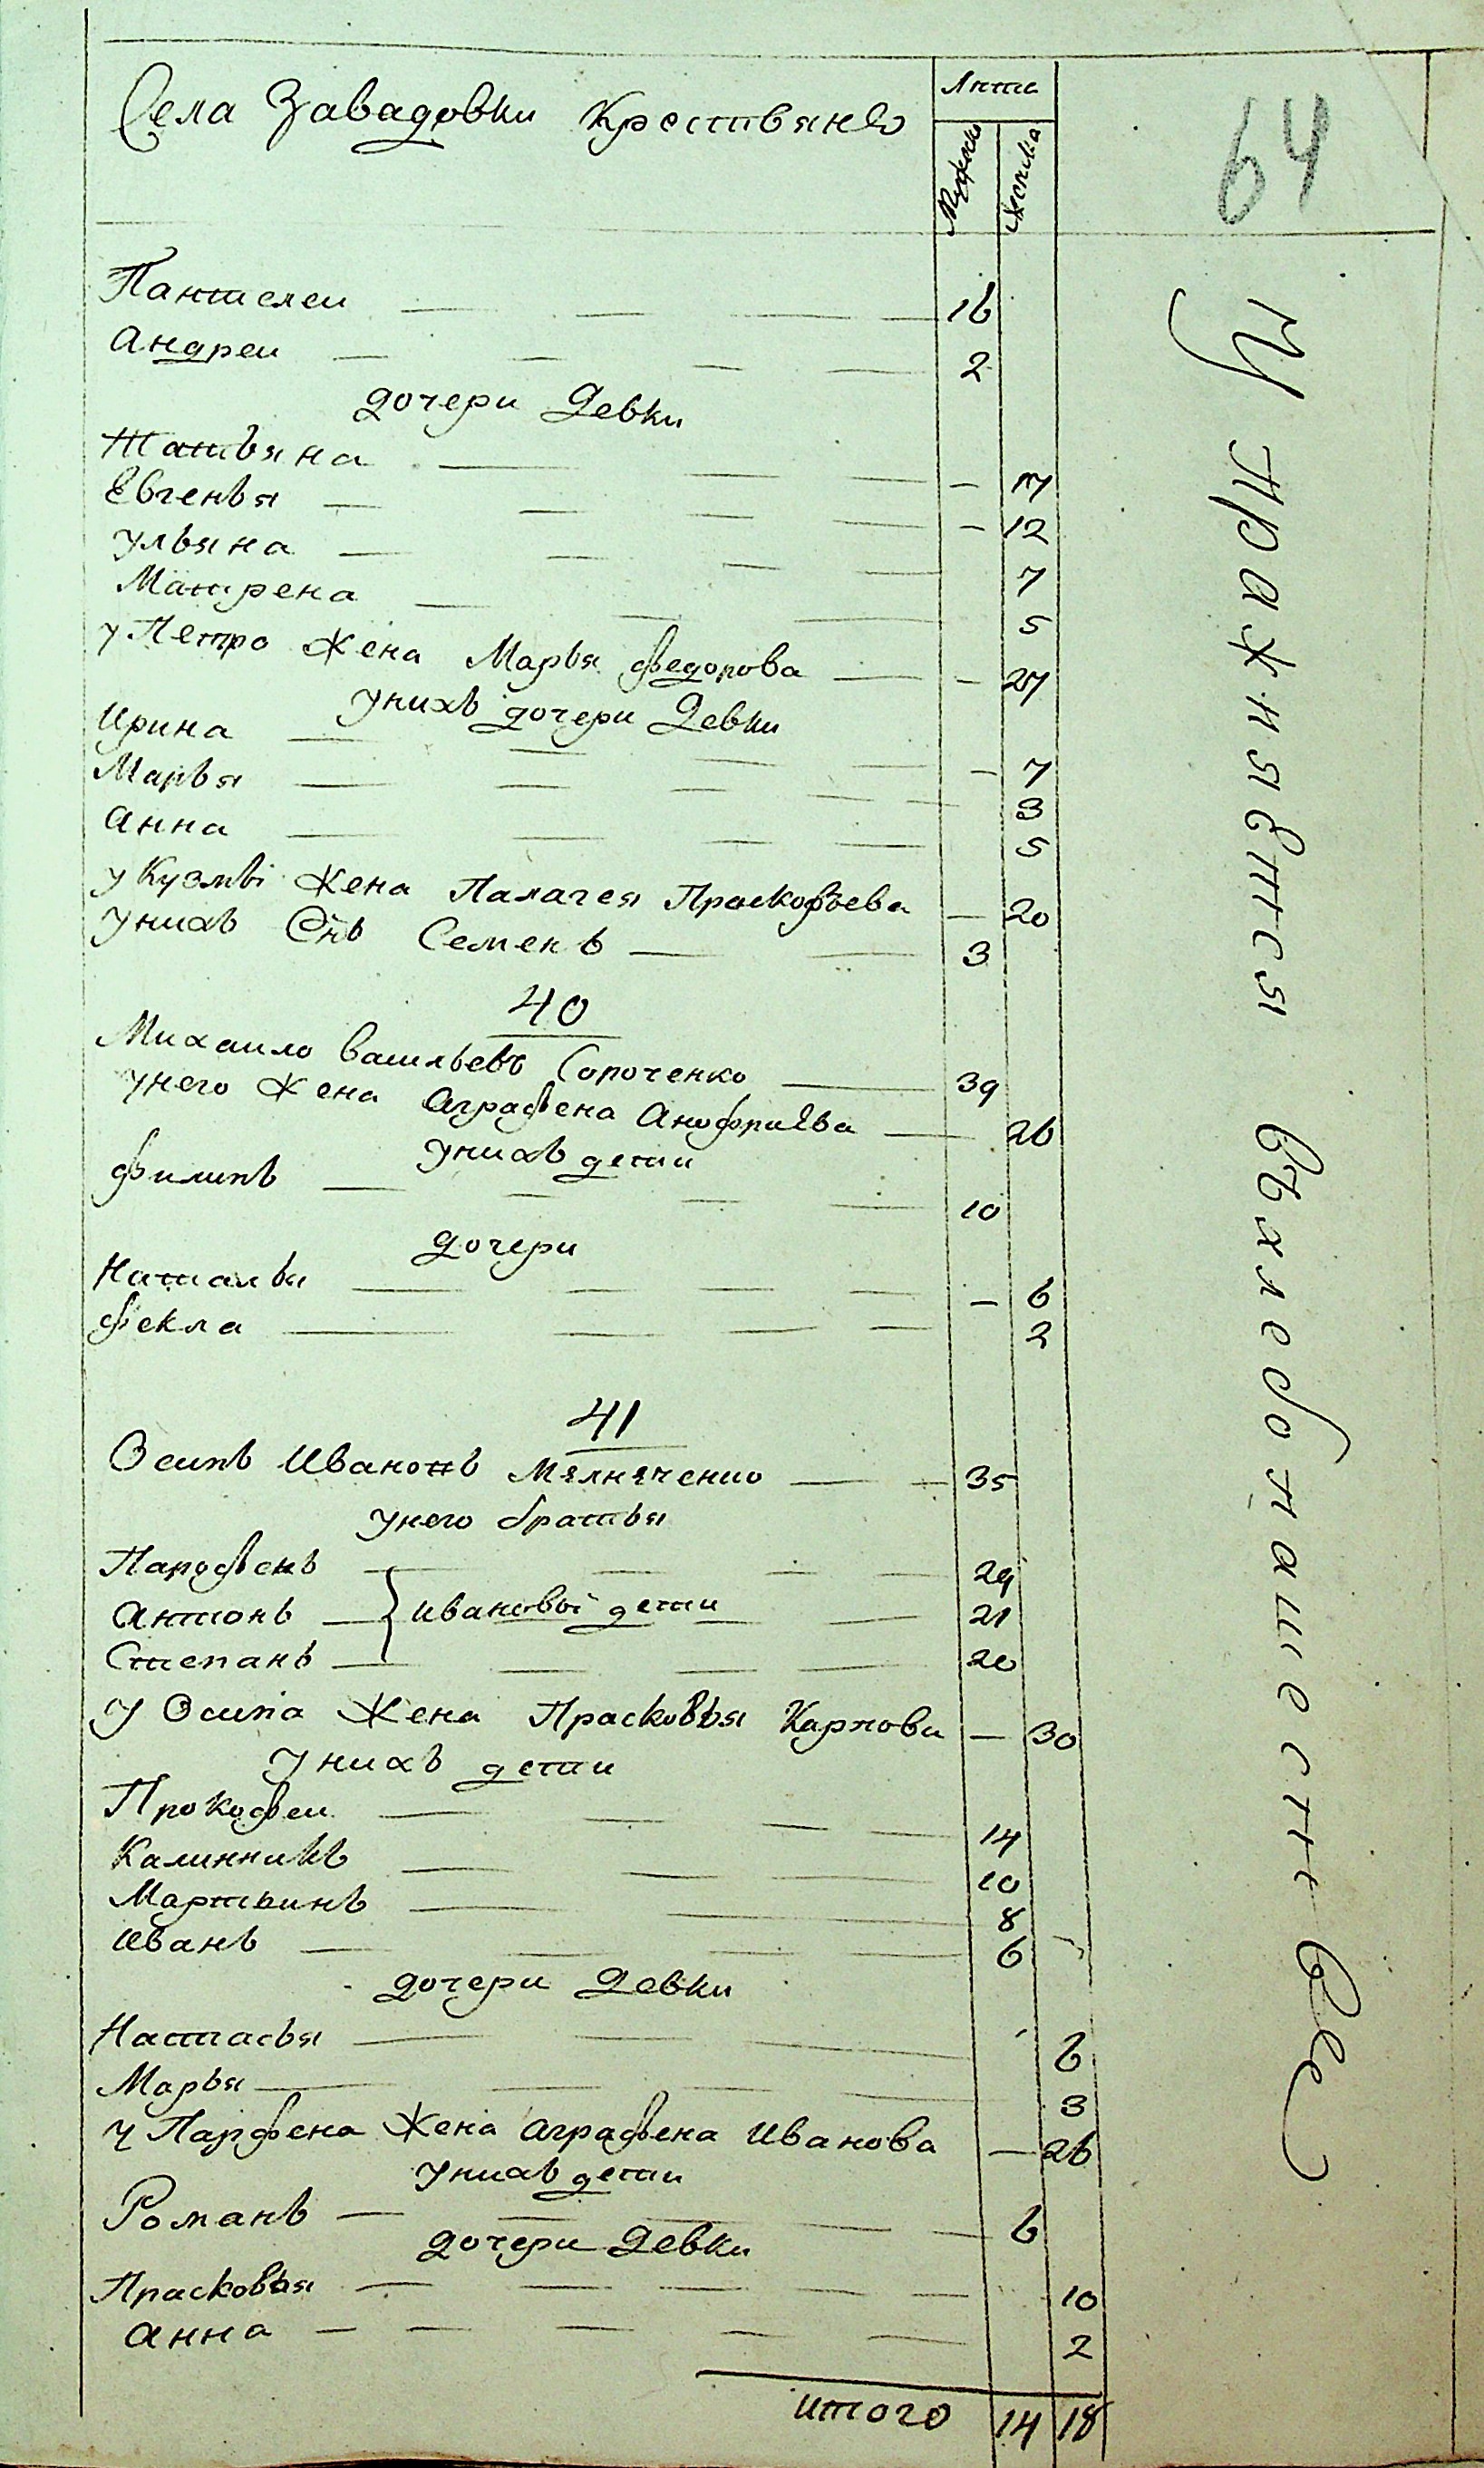 Села Завадовки Крестьянъ
Лѣта
Мужска
Женска
64
Пантелеи 16
Андреи 2
дочери Девки
Татьяна 17
Евгенья 12
Ульяна 7
Матрена 5
у Петра Жена Марья Федорова 27
у нихъ дочери Девки
Ирина 7
Марья 3
Анна 5
у Кузмы Жена Палагея Праскофьева 20
у нихъ Снъ Семенъ 3
40
Михаило Васильевъ Сороченко 39
у него Жена Аграфена Анофриева 26
у нихъ дети
Филипъ 10
дочери
Наталья 6
Фекла 2
41
Осипъ Ивановъ 35
у него братья
Парфенъ 29
Антонъ Ивановы дети 21
Степанъ 20
у Осипа Жена Прасковья Карпова 30
у нихъ дети
Прокофеи 14
Калинникъ 10
Мартынъ 8
Иванъ 6
дочери Девки
Настасья 6
Марья 3
у Парфена Жена Аграфена Иванова 26
у нихъ дети
Романъ 6
дочери Девки
Прасковья 10
Анна 2
итого 14 18
упражняется въ хлебопашестве